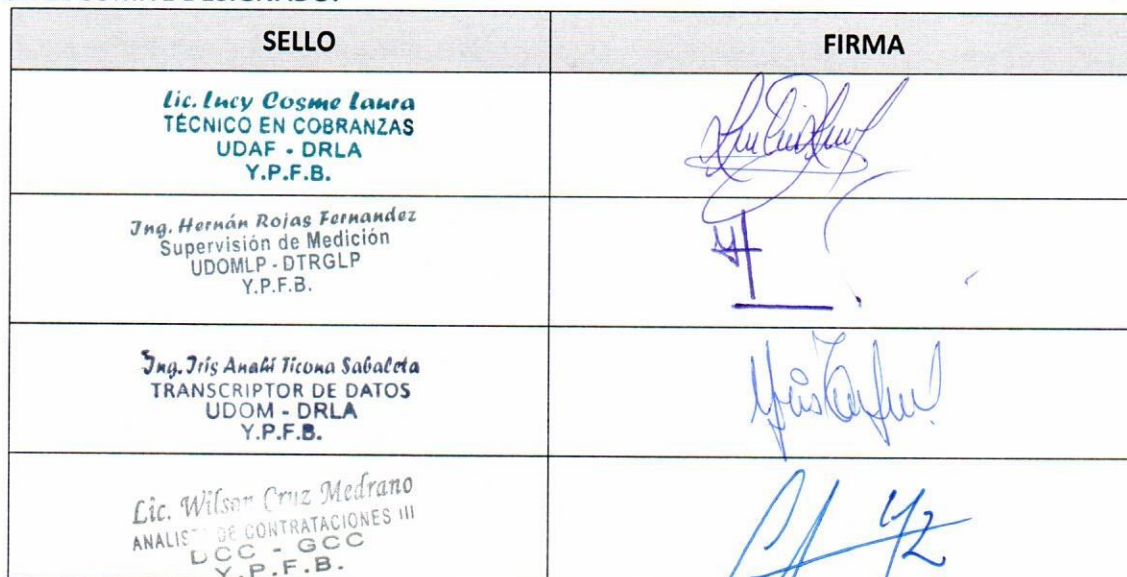 SELLO FIRMA
Lic. Lucy Cosme Laura
TÉCNICO EN COBRANZAS
UDAF - DRLA
Y.P.F.B.
Ing. Hernán Rojas Fernandez
Supervisión de Medición
UDOMLP - DTRGLP
Y.P.F.B.
Ing. Iris Anahí Ticona Sabaleta
TRANSCRIPTOR DE DATOS
UDOM - DRLA
Y.P.F.B.
Lic. Wilson Cruz Medrano
ANALISTA DE CONTRATACIONES III
DCC - GCC
Y.P.F.B.